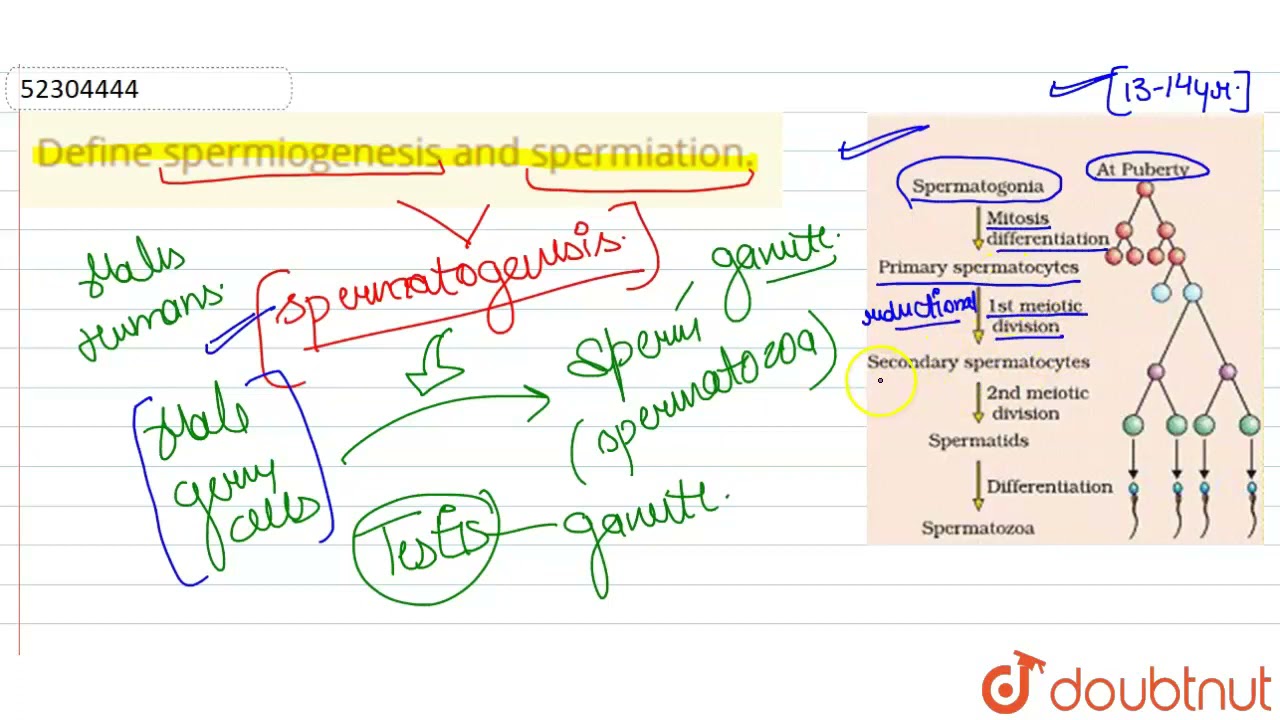 52304444
[13-14yr.]
Define spermiogenesis and spermiation.
Males
Humans.
[spermatogenesis.]
gamete.
Sperm
(spermatozoa)
[Male
germ
cells]
Testis
gamete.
At Puberty
Spermatogonia
Mitosis
differentiation
Primary spermatocytes
reductional
1st meiotic
division
Secondary spermatocytes
2nd meiotic
division
Spermatids
Differentiation
Spermatozoa
doubtnut